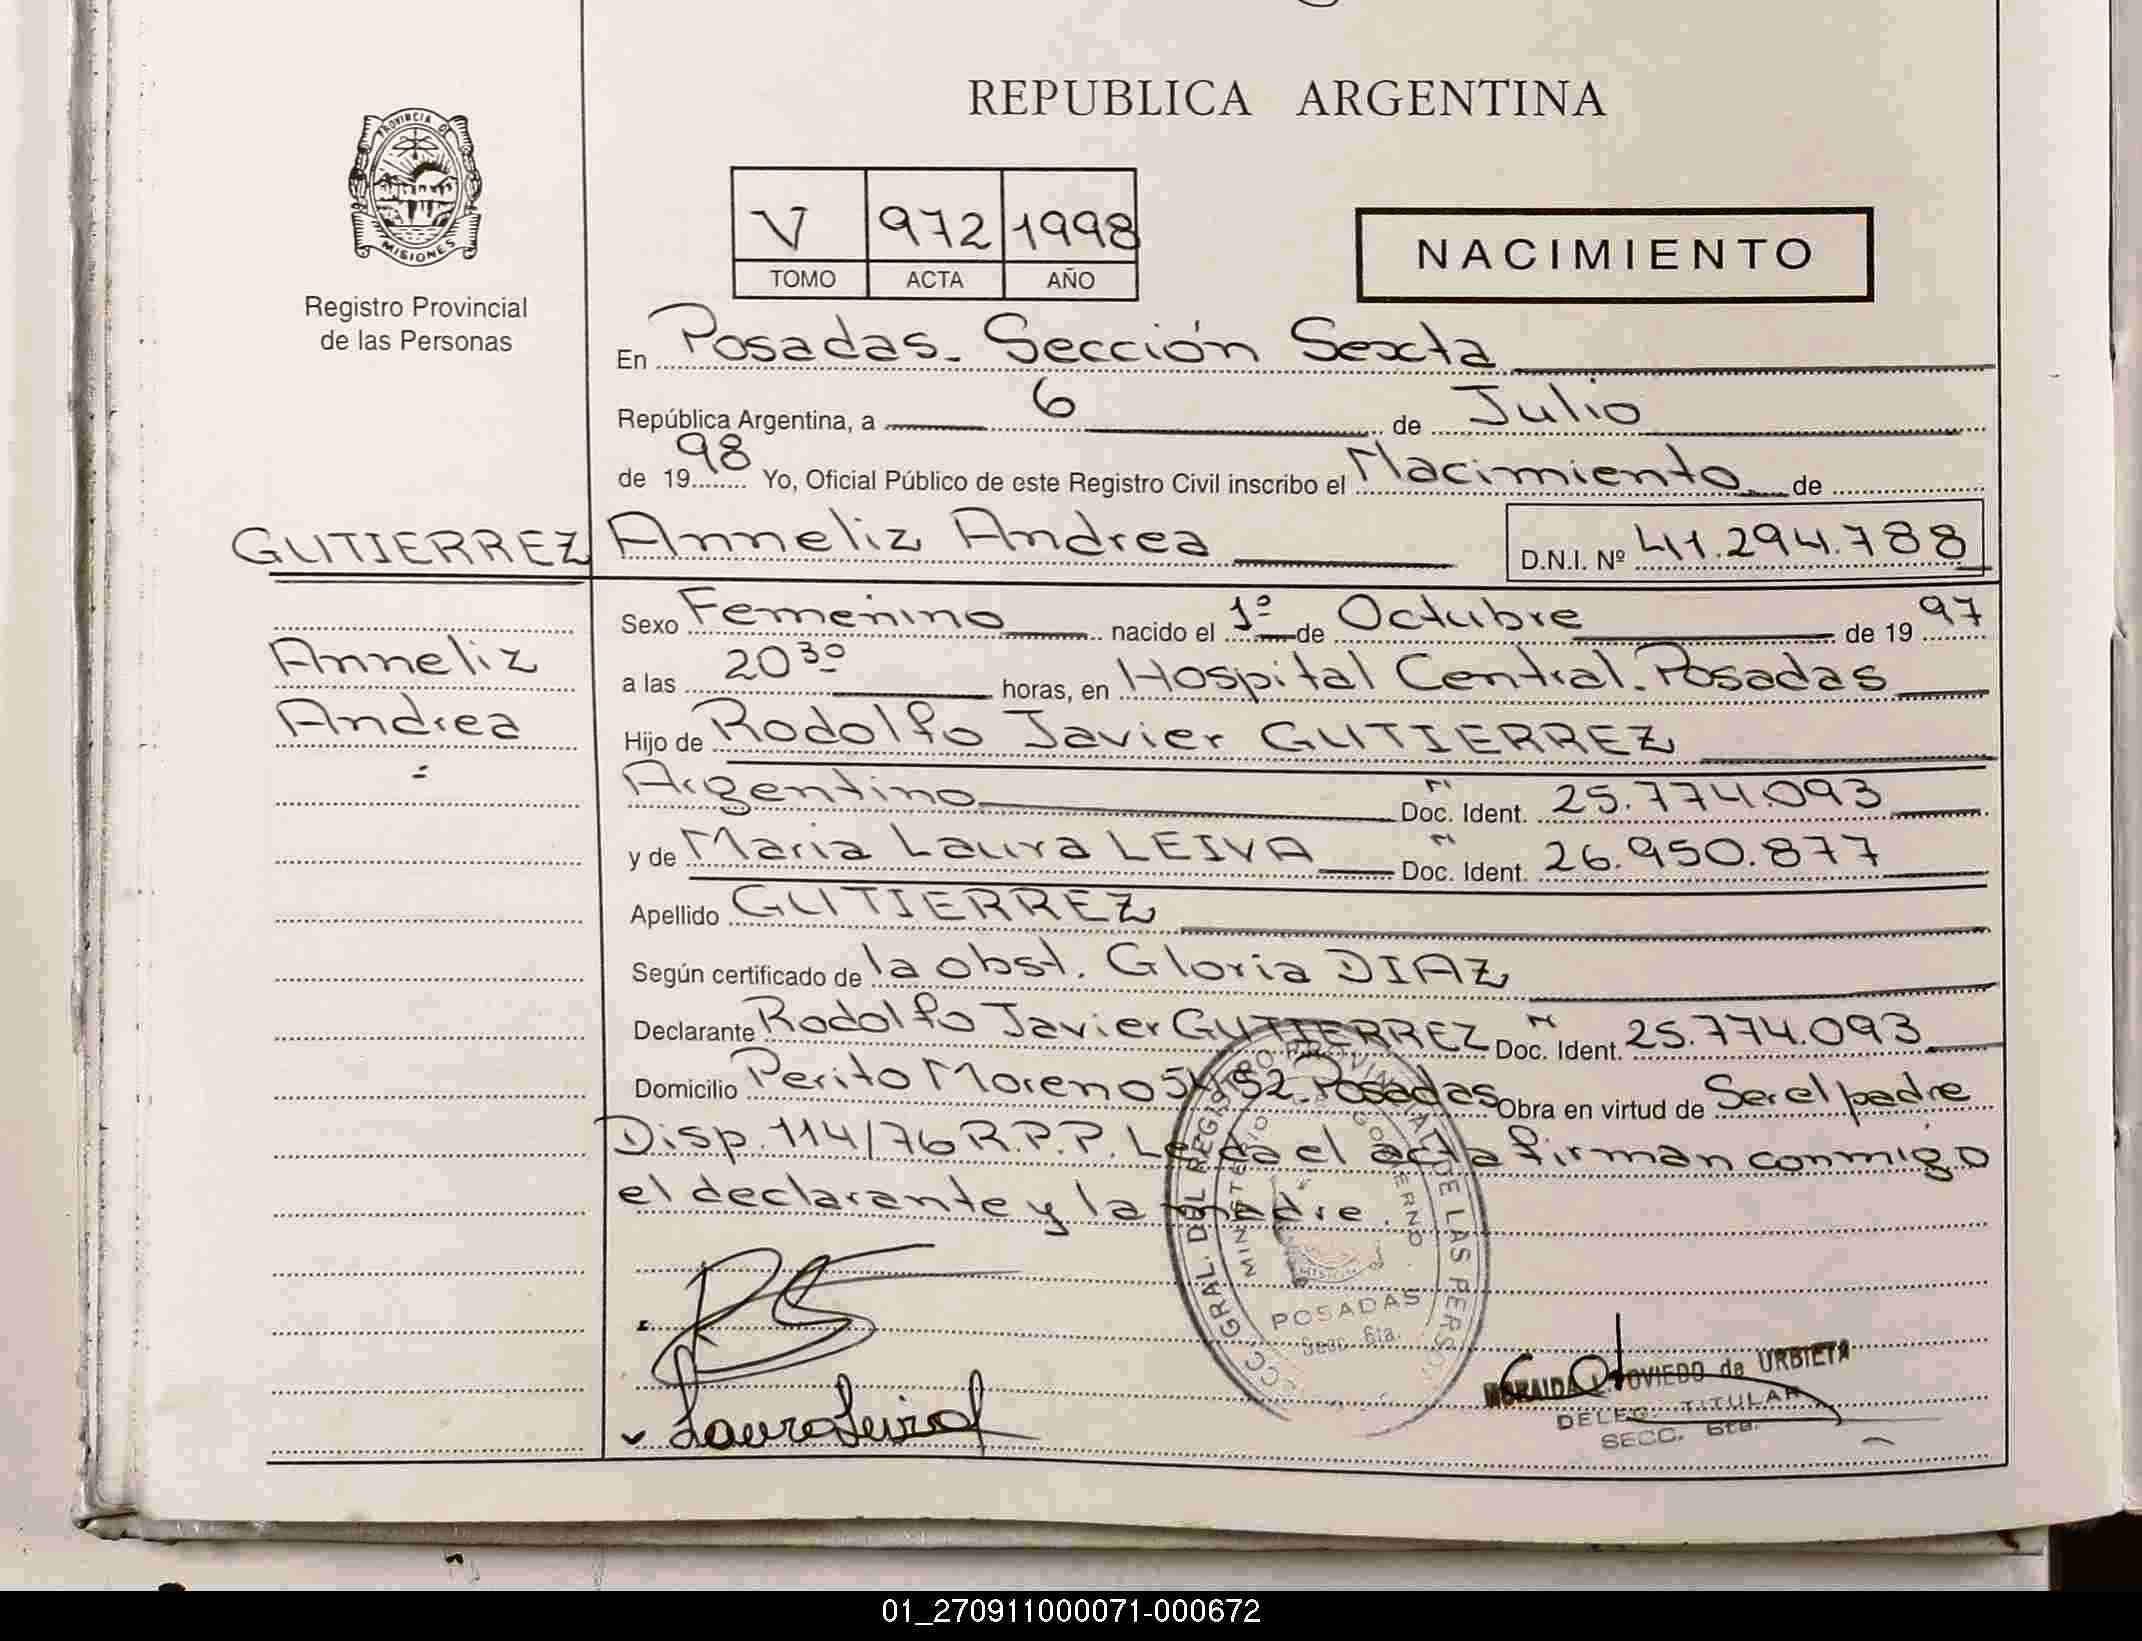 REPUBLICA ARGENTINA
PROVINCIA DE
MISIONES
Registro Provincial
de las Personas
V 972 1998
TOMO ACTA AÑO
NACIMIENTO
En Posadas. Sección Sexta
República Argentina, a 6 de Julio
de 1998 Yo, Oficial Público de este Registro Civil inscribo el Nacimiento de
GUTIERREZ Anneliz Andrea D.N.I. Nº 41.294.788
Anneliz
Andrea
Sexo Femenino nacido el 1º de Octubre de 1997
a las 20 30 horas, en Hospital Central. Posadas
Hijo de Rodolfo Javier GUTIERREZ
Argentino Doc. Ident. 25.774.093
y de Maria Laura LEIVA Doc. Ident. 26.950.877
Apellido GUTIERREZ
Según certificado de la obst. Gloria DIAZ
Declarante Rodolfo Javier GUTIERREZ Doc. Ident. 25.774.093
Domicilio Perito Moreno 5452. Posadas Obra en virtud de Ser el padre
Disp. 114/76 R.P.P. Leida el acta firman conmigo
el declarante y la madre.
GRAL. DEL REGISTRO PROVINCIAL DE LAS PERSO
MINISTERIO GOBIERNO
POSADAS
Secc. 6ta.
Laura Leiva
OVIEDO de URBIETA
DELEG. TITULAR
SECC. 6ta.
01_270911000071-000672